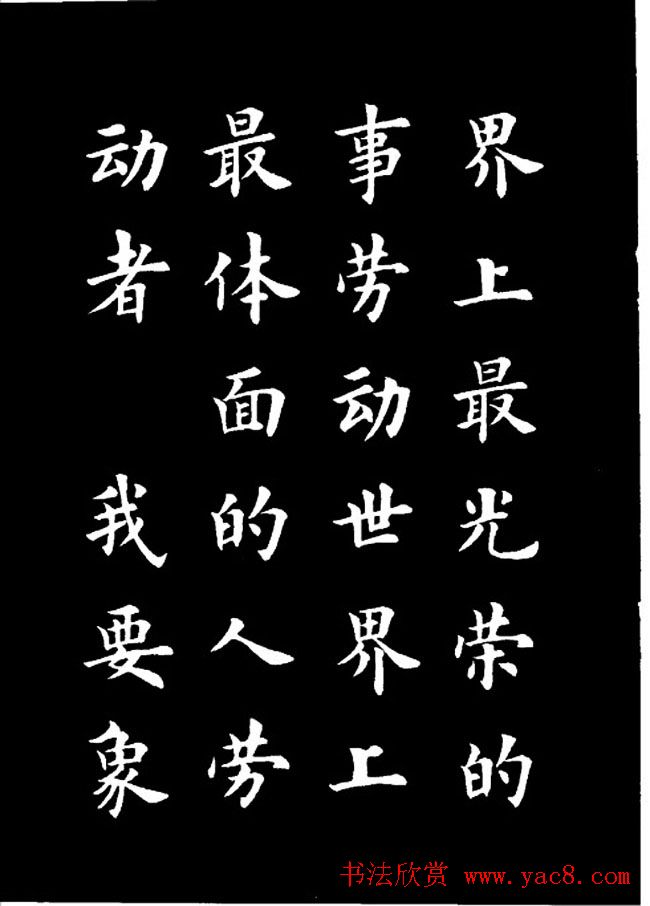 界上最光荣的
事劳动世界上
最体面的人劳
动者 我要象
书法欣赏 www.yac8.com